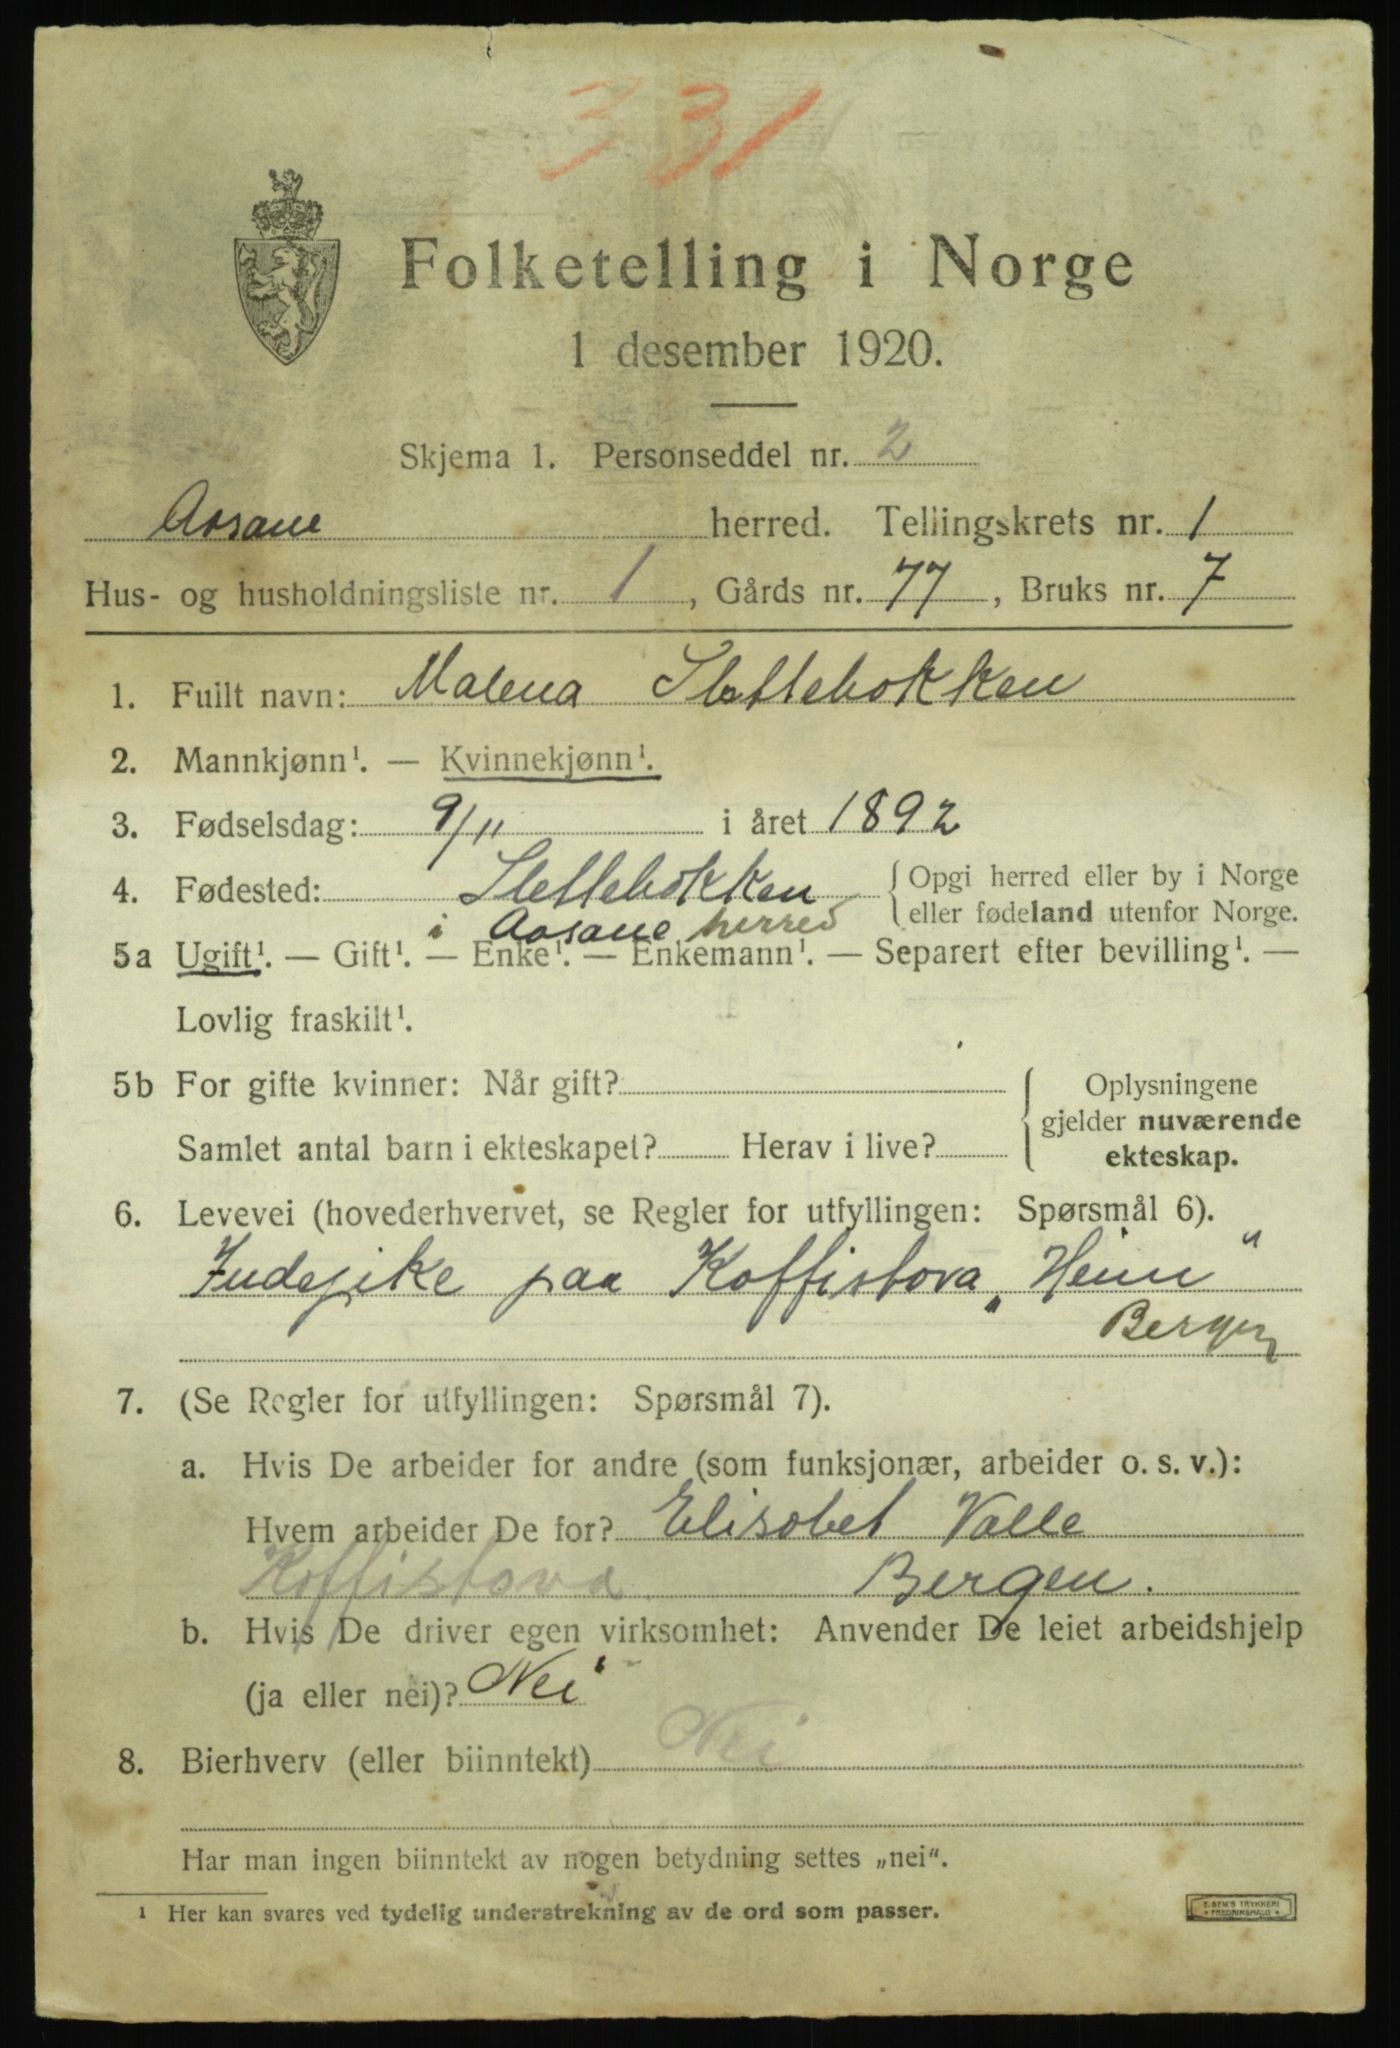 331
Folketelling i Norge
1 desember 1920.
Skjema 1. Personseddel nr. 2
Aasane herred. Tellingskrets nr. 1
Hus- og husholdningsliste nr. 1, Gårds nr. 77, Bruks nr. 7
1. Fullt navn: Malena Slettebakken
2. Mannkjønn¹. — Kvinnekjønn¹.
3. Fødselsdag: 9/11 i året 1892
4. Fødested: Slettebakken {Opgi herred eller by i Norge
i Aasane herred eller fødeland utenfor Norge.
5a Ugift¹. — Gift¹. — Enke¹. — Enkemann¹. — Separert efter bevilling¹. —
Lovlig fraskilt¹.
5b For gifte kvinner: Når gift? { Oplysningene
gjelder nuværende
Samlet antal barn i ekteskapet? Herav i live?
ekteskap.
6. Levevei (hovederhvervet, se Regler for utfyllingen: Spørsmål 6).
Indejike paa Kaffistova „Heim“
Bergen
7. (Se Regler for utfyllingen: Spørsmål 7).
a. Hvis De arbeider for andre (som funksjonær, arbeider o. s. v.):
Hvem arbeider De for? Elisabet Valle
Kaffistova Bergen.
b. Hvis De driver egen virksomhet: Anvender De leiet arbeidshjelp
(ja eller nei)? Nei
8. Bierhverv (eller biinntekt) Nei
Har man ingen biinntekt av nogen betydning settes „nei“.
¹ Her kan svares ved tydelig understrekning av de ord som passer.
E. SEM'S TRYKKERI
FREDRIKSHALD